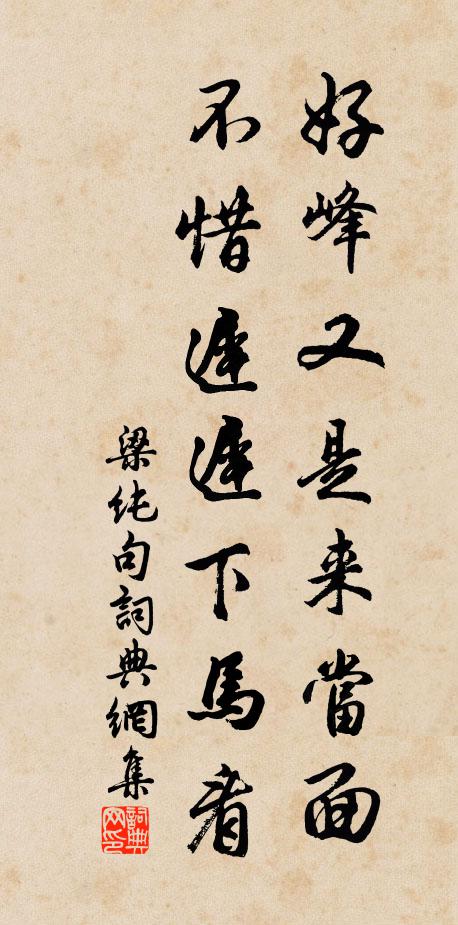 好峰又是来當面
不惜遲遲下馬看
梁純句詞典網集
詞典网印